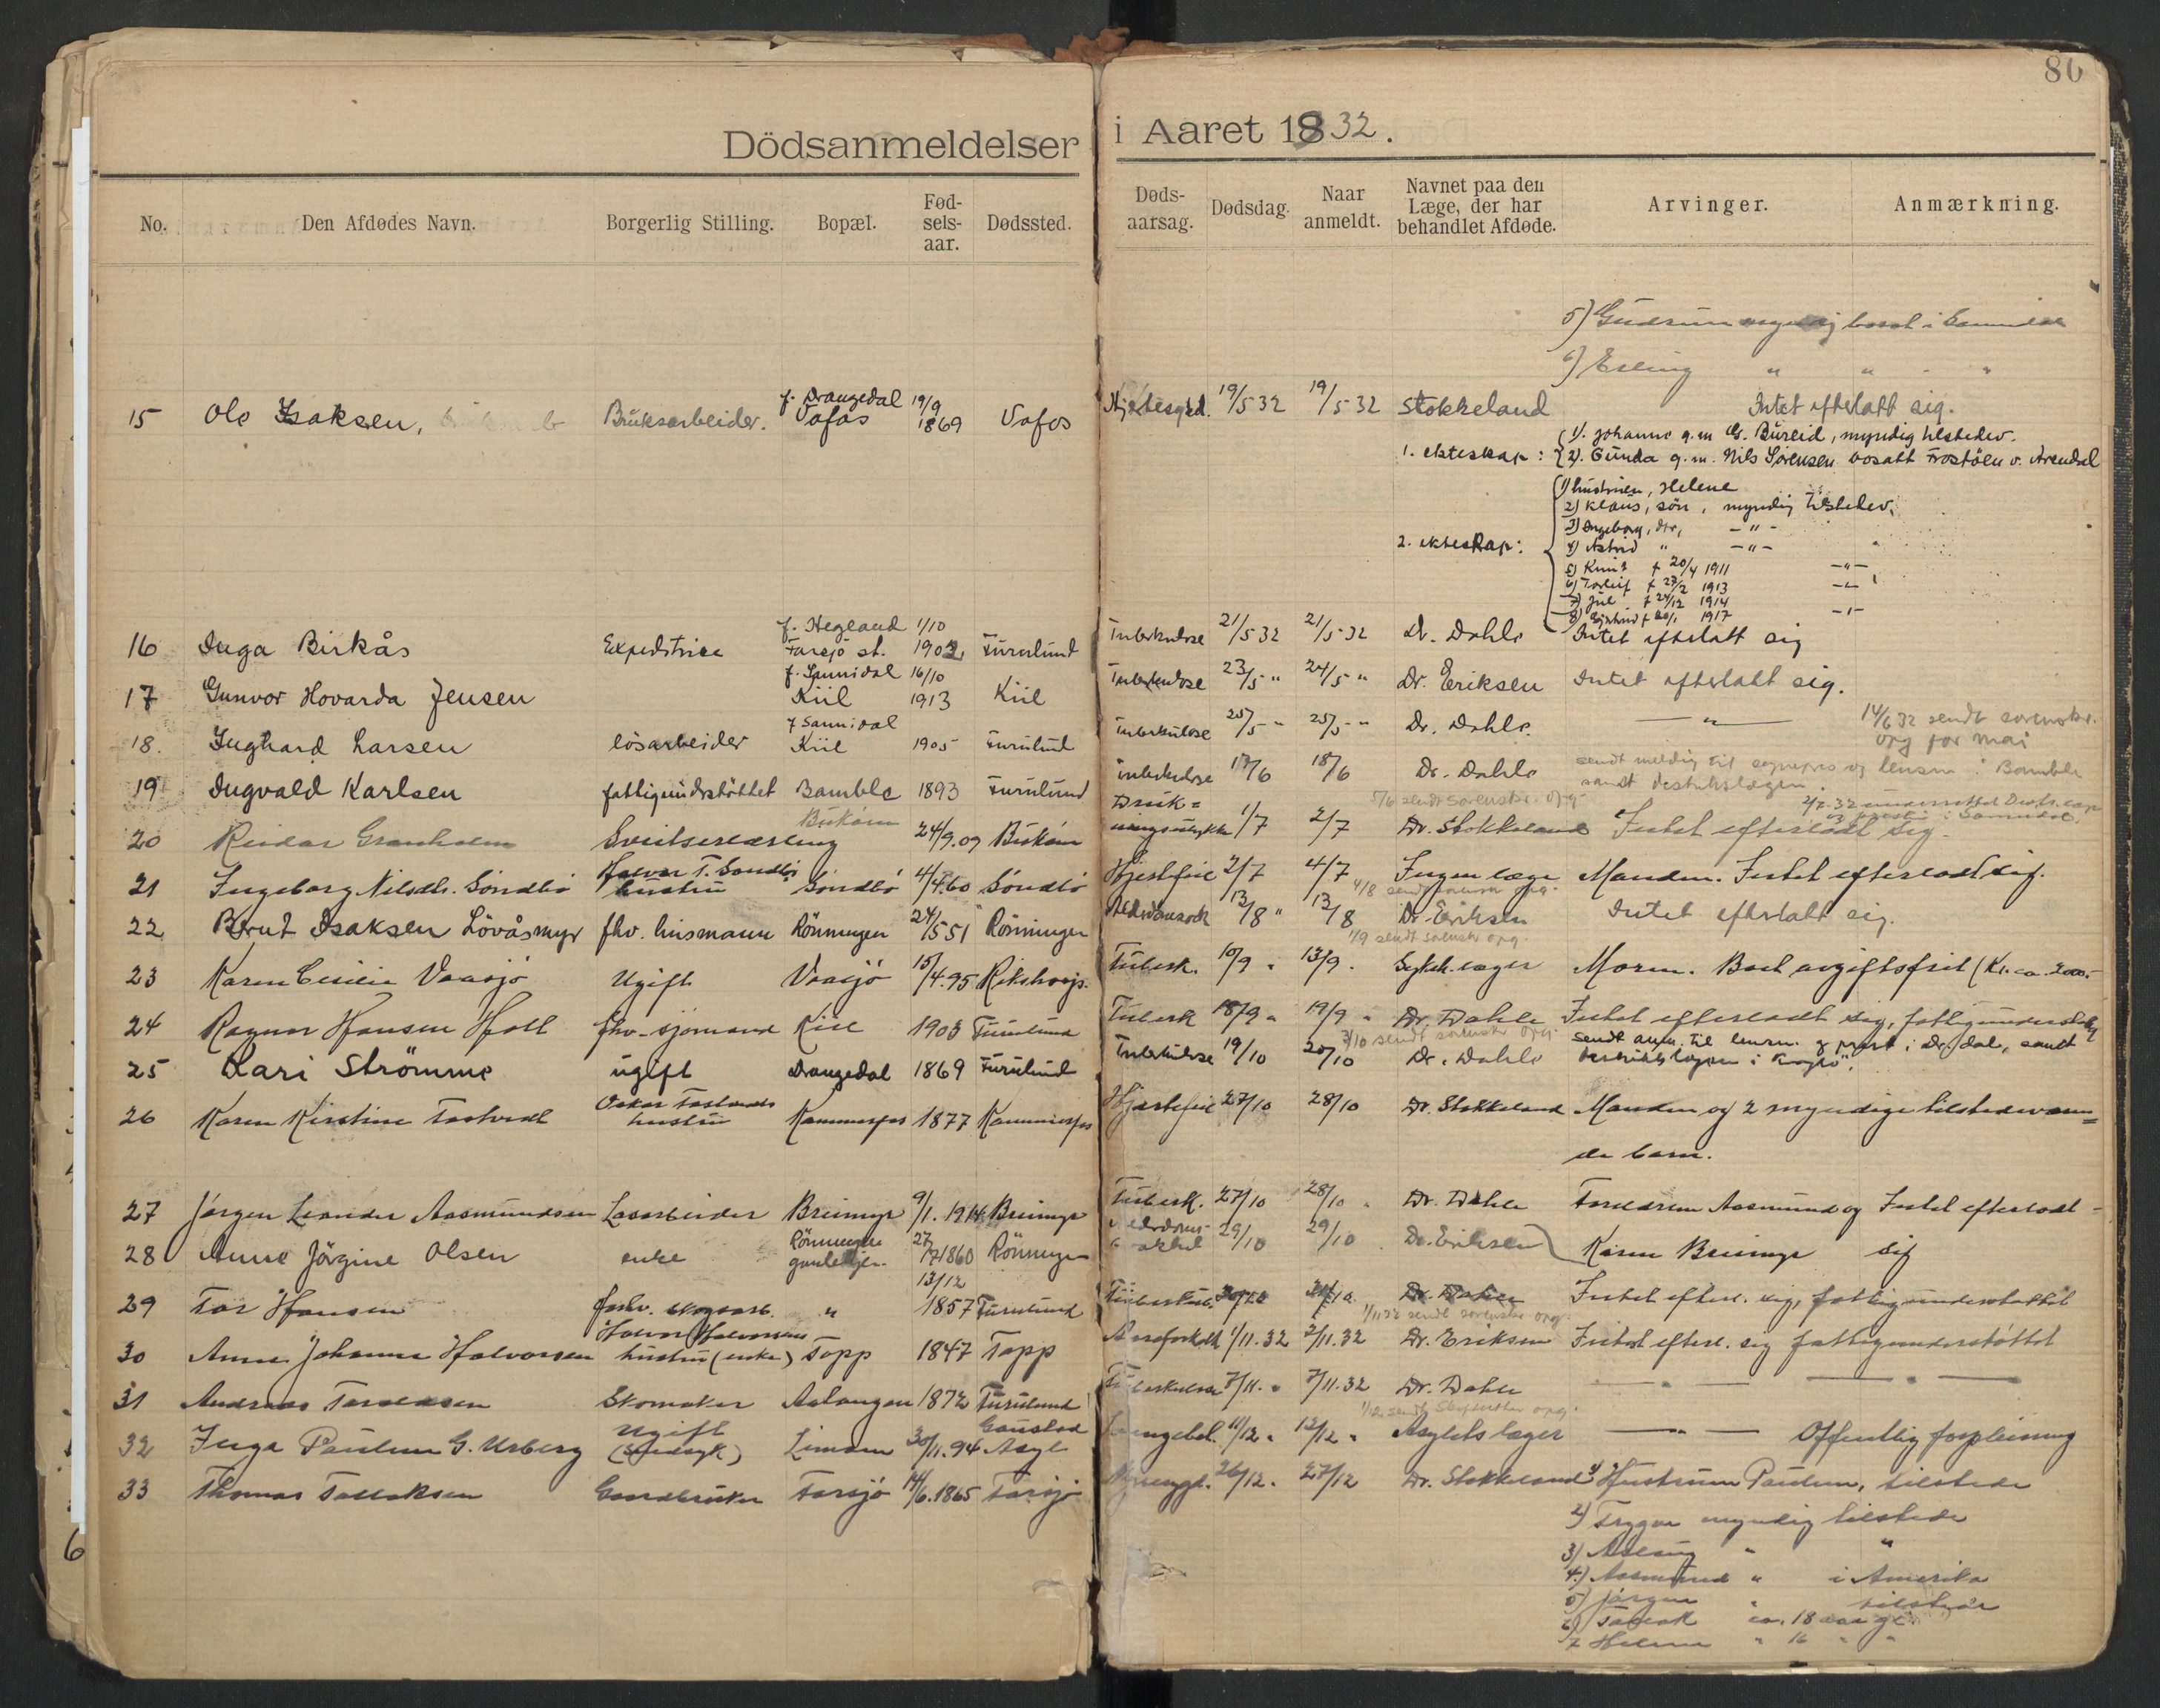 86
Dödsanmeldelser i Aaret 1932.
No. Den Afdødes Navn. Borgerlig Stilling. Bopæl. Fød-sels-aar. Dødssted. Døds-aarsag. Dødsdag. Naar anmeldt. Navnet paa den Læge, der har behandlet Afdøde. Arvinger. Anmærkning.
5) Gudrun myndig bosat i Sannidal
6) Erling " " - "
f. Drangedal 19/9
15 Ole Isaksen, Bruksarbeider. Vafos 1869 Vafos 19/5 32 19/5 32 Stokkeland Intet efterlatt sig.
1. ekteskap: 1). Johanne g.m. G. Büreid, myndig tilstedev.
2). Gunda g.m. Nils Sørensen bosatt Frostöen v. Arendal
2. ekteskap: 1) hustruen, Helene
2) Klaus, sön, myndig tilstedev.
3) Ingeborg, dtr, - " -
4) Astrid " - " -
5) Knut f 20/4 1911 - " -
6) Torleif f 27/2 1913 - " -
7) Jul f 24/12 1914
8) f 20/1 1917 - " -
f. Hegland 1/10
16 Inga Birkås Expeditrise Farsjö st. 1902 Furulund Tuberkulose 21/5 32 21/5 32 Dr. Dahle Intet efterlatt sig
f. Sannidal 16/10
17 Gunvor Hovarda Jensen Kiil 1913 Kiil Tuberkulose 23/5 " 24/5 " Dr. Eriksen Intet efterlatt sig.
f Sannidal
18. Inghard Larsen lösarbeider Kiil 1905 Furulund Tuberkulose 25/5 - " 25/5 - " Dr. Dahle. — " — 14/6 32 sendt sorenskr. opg for mai
19 Ingvald Karlsen fattigunderstöttet Bamble 1893 Furulund Tuberkulose 17/6 18/6 Dr. Dahle sendt meldig til sogneprs og lensm i Bamble
samt distriktslægen.
5/6 sendt sorenskr. opg
20 Reidar Granholm Sveitserlærling Bükåsen 24/9.09 Bükåsen Druk=ningsulykke 1/7 2/7 Dr. Stokkeland Intet efterladt sig.
21 Ingeborg Nilsdtr. Söndbö Halvor T. Söndbö hustru Söndbö 4/4.60 Söndbö Hjertefeil 2/7 4/7 Ingen læge Manden. Intet efterladt sig.
22 Bernt Isaksen Lövåsmyr fhv. husmann Rönningen 24/5 51 Rönningen 13/8 " 13/8 Dr. Eriksen Intet efterlatt sig.
1/9 sendt sorenskr opg.
23 Karen Cecilie Vaasjö Ugift Vaasjö 15/4.95 Rikshosp. Tuberk. 10/9 " 13/9. Sykeh. læger Moren. Boet avgiftsfrit (Kr. ca. 2000.-
24 Ragnar Hansen Holt fhv. sjömand Kiil 1903 Furulund Tuberk 18/9 " 19/9 " Dr. Dahle Intet efterladt sig, fattigunderstöttet
3/10 sendt sorenskr opg.
25 Kari Strömme ugift Drangedal 1869 Furulund Tuberkulose 19/10 20/10 Dr. Dahle sendt anm. til lensm. og prest i Dr.dal, samt
distriktslægen i Kragerö.
26 Karen Kirstine Tostvedt Oskar Tostvedts hustru Kammerfos 1877 Kammerfos Hjertefeil 27/10 28/10 Dr. Stokkeland Manden og 2 myndige tilstedeværen=
de barn.
27 Jörgen Leander Aasmundsen Lösarbeider Breimyr 9/1. 1914 Breimyr Tuberk. 27/10 28/10 " Dr. Dahle Foreldrene Aasmund og Intet efterladt
28 Anne Jörgine Olsen enke Rönningen gamlehjem 27/7 1860 Rönningen 29/10 29/10 Dr. Eriksen Karen Breimyr sig
13/12
29 Tor Hansen forhv. skogsarb. " 1857 Furulund Dr. Dahle Intet efterl. sig, fattigunderstöttet
1/11 32 sendt sorenskr opg.
30 Anne Johanne Halvorsen Halvor Halvorsens hustru (enke) Topp 1847 Topp Aareforkalk 1/11.32 2/11.32 Dr. Eriksen Intet efterl. sig fattigunderstöttet
31 Andreas Tereldsen Skomaker Aslangen 1872 Furulund Tuberkulose 7/11. " 7/11.32 Dr. Dahle — " — — " —
1/12 sendt Skifteretten opg.
32 Inga Pauline G. Urberg Ugift (Sindssyk) Limoen 30/11.94 Gaustad Asyl 11/12 " 12/12 " Asylets læger — " — Offentlig forpleining
33 Thomas Tallaksen Gaardbruker Farsjö 14/6.1865 Farsjö 26/12. 27/12 Dr. Stokkeland 1) Hustruen Pauline, tilstede
2) Trygve myndig tilstede
3) Aslaug " "
4.) Aasmund " i Amerika
5) Jörgen " tilstede
6) Tallak ca. 18 aar gl.
7 Helene " 16 " "
6